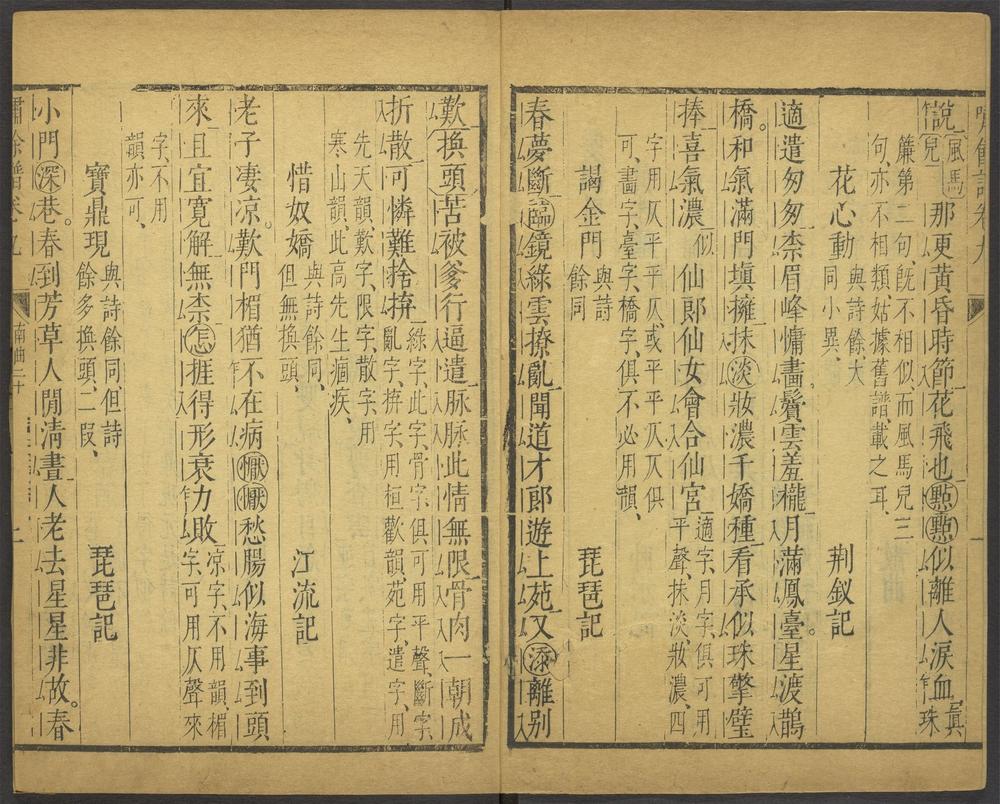 說風馬兒那更黃昏時節花飛也點點似離人淚血眞珠
簾第二句旣不相似而風馬兒三
句、亦不相類姑據舊譜載之耳、
花心動 與詩餘、大同小異、 荆釵記
適遣匆匆柰眉峰慵畫鬢雲羞櫳月滿鳳臺星渡鵲
橋。和氣滿門塡擁抹淡妝濃千嬌種看承似珠擎璧
捧喜氣濃似仙郎仙女會合仙宮 適字、月字、俱可用平聲、抹淡、妝濃、四
字用仄平平仄或平平仄仄俱
可、畵字、臺字、橋字、俱不必用韻、
謁金門 與詩餘同 琵琶記
春夢斷臨鏡綠雲撩亂聞道才郎遊上苑又添離别
歎換頭苦被爹行逼遣脉脉此情無限骨肉一朝成
折散可憐難捨拚 綠字、此字、骨字、俱可用平聲、斷字、亂字、拚字、用桓歡韻苑字、遣字、用
先天韻、歎字、限字、散字、用
寒山韻、此高先生痼疾、
惜奴嬌 與詩餘同、但無換頭、 江流記
老子凄凉。歎門楣猶不在病懨懨愁腸似海事到頭
來且宜寬解無柰怎捱得形衰力敗 凉字、不用韻、楣字、可用仄聲來
字、不用
韻亦可、
寶鼎現 與詩餘同但詩餘多換頭、一叚、 琵琶記
小門深巷。春到芳草人閒淸晝人老去星星非故。春
嘯餘譜 卷九 南曲二十